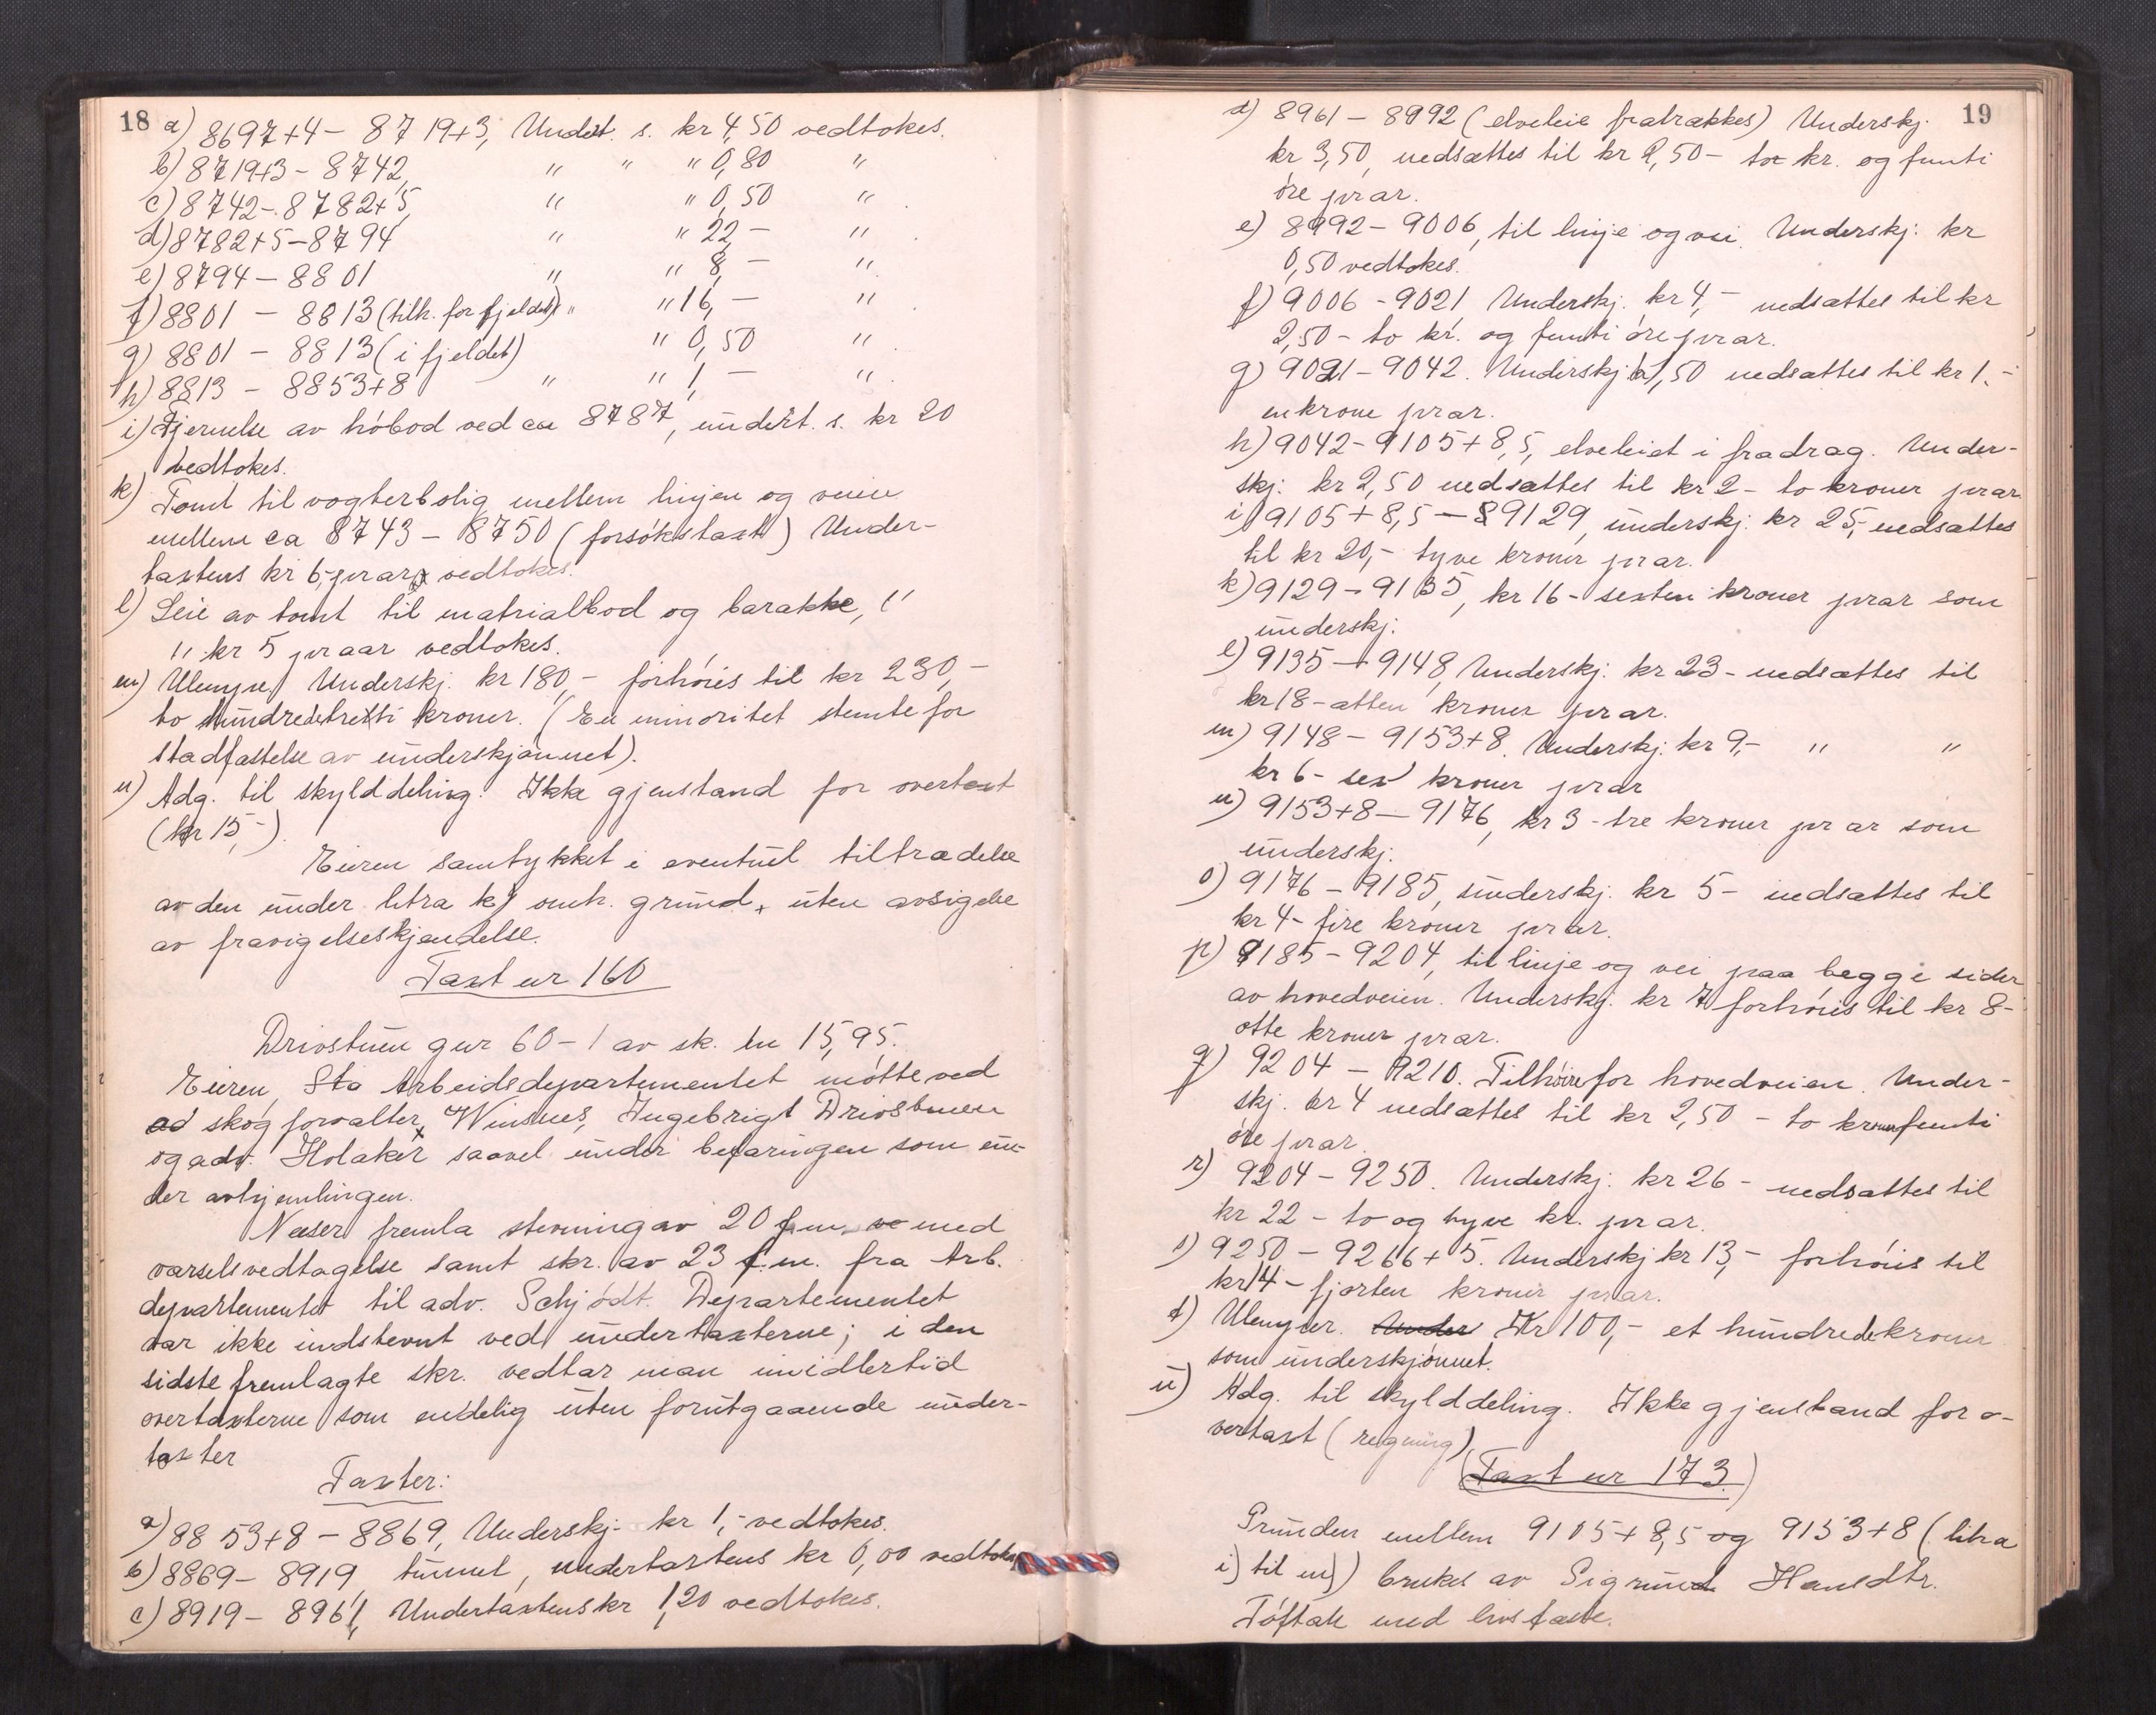 18
a) 8697+4 – 8719+3, Undert. s. kr 4,50 vedtokes.
b) 8719+3 – 8742, " " " 0,80 "
c) 8742 – 8782+5, " " 0,50 " .
d) 8782+5 – 8794 " " 22 – " .
e) 8794 – 8801 " " 8, – " .
f) 8801 – 8813 (tilh. for fjeldet) " " 16, – " .
g) 8801 – 8813 (i fjeldet) " 0,50 " .
h) 8813 – 8853+8 " " 1 – " .
i) Fjernelse av høbod ved ca 8787, undert. s. kr 20
vedtokes.
k) Tomt til vogterbolig mellem linjen og veien
mellem ca 8743 – 8750 (forsøkstaxt) Under-
taxtens kr 6,- pr ar vedtokes.
l) Leie av tomt til matrialbod og barakke, "
" kr 5 pr aar vedtokes.
m) Ulemper Underskj. kr 180,- forhöies til kr 230,-
to hundredetretti kroner. (En minoritet stemte for
stadfæstelse av underskjønnet).
n) Adg. til skylddeling. Ikke gjenstand for overtaxt
(kr 15,-).
Eieren samtykket i eventuel tiltrædelse
av den under litra k) omh. grund, uten avsigelse
av fravigelseskjendelse.
Taxt nr 160
Drivstuen gnr 60 – 1 av sk. m 15,95.
Eieren, Sta Arbeidsdepartementet møtte ved
skogforvalter Winsnes, Ingebrigt Drivstuen
og adv. Holaker saavel under befaringen som un-
der avhjemlingen.
Næser fremla stevning av 20 f.m. med
varselsvedtagelse samt skr. av 23 f.m. fra Arb.
departementet til adv. Schjödt. Departementet
var ikke indstevnt ved undertaxterne; i den
sidste fremlagte skr. vedtar man imidlertid
overtaxterne som endelig uten forutgaaende under-
taxter
Taxter:
a) 8853+8 – 8869, Underskj. kr 1,- vedtokes.
b) 8869 – 8919, tunnel, undertaxtens kr 0,00 vedtokes
c) 8919 – 8961, Undertaxtens kr 1,20 vedtokes.
19
d) 8961 – 8992 (elveleie fratrækkes) Underskj.
kr 3,50, nedsættes til kr 2,50 – to kr. og femti
øre pr ar.
e) 8992 – 9006, til linje og vei. Underskj. kr
0,50 vedtokes.
f) 9006 – 9021, Underskj. kr 4,- nedsættes til kr
2,50 – to kr. og femti øre pr ar.
g) 9021 – 9042. Underskj. kr 1,50 nedsættes til kr 1.-
en krone pr ar.
h) 9042 – 9105+8,5, elveleiet i fradrag. Under-
skj. kr 2,50 nedsættes til kr 2 – to kroner pr ar
i) 9105+8,5 – 9129, underskj. kr 25,- nedsættes
til kr 20,- tyve kroner pr ar.
k) 9129 – 9135, kr 16 – sexten kroner pr ar som
underskj.
l) 9135 – 9148, Underskj. kr 23 – nedsættes til
kr 18 – atten kroner pr ar.
m) 9148 – 9153+8. Underskj. kr 9,- " "
kr 6 – sex kroner pr ar
n) 9153+8 – 9176, kr 3 – tre kroner pr ar som
underskj.
o) 9176 – 9185, underskj. kr 5 – nedsættes til
kr 4 – fire kroner pr ar.
p) 9185 – 9204, til linje og vei paa begge sider
av hovedveien. Underskj. kr 7 forhöies til kr 8 –
otte kroner pr ar.
q) 9204 – 9210. Tilhöire for hovedveien. Under-
skj. kr 4 nedsættes til kr 2,50 – to kroner femti
øre pr ar.
r) 9204 – 9250. Underskj. kr 26 – nedsættes til
kr 22 – to og tyve kr. pr ar.
s) 9250 – 9266+5. Underskj kr 13,- forhöies til
kr 14 – fjorten kroner pr ar.
t) Ulemper. Under Kr 100,- et hundrede kroner
som underskjønnet.
u) Adg. til skylddeling. Ikke gjenstand for o-
vertaxt (regning).
(Taxt nr 173.)
Grunden mellem 9105+8,5 og 9153+8 (litra
i) til m)) brukes av Sigrund Hansdtr.
Töftak med livsfæste.